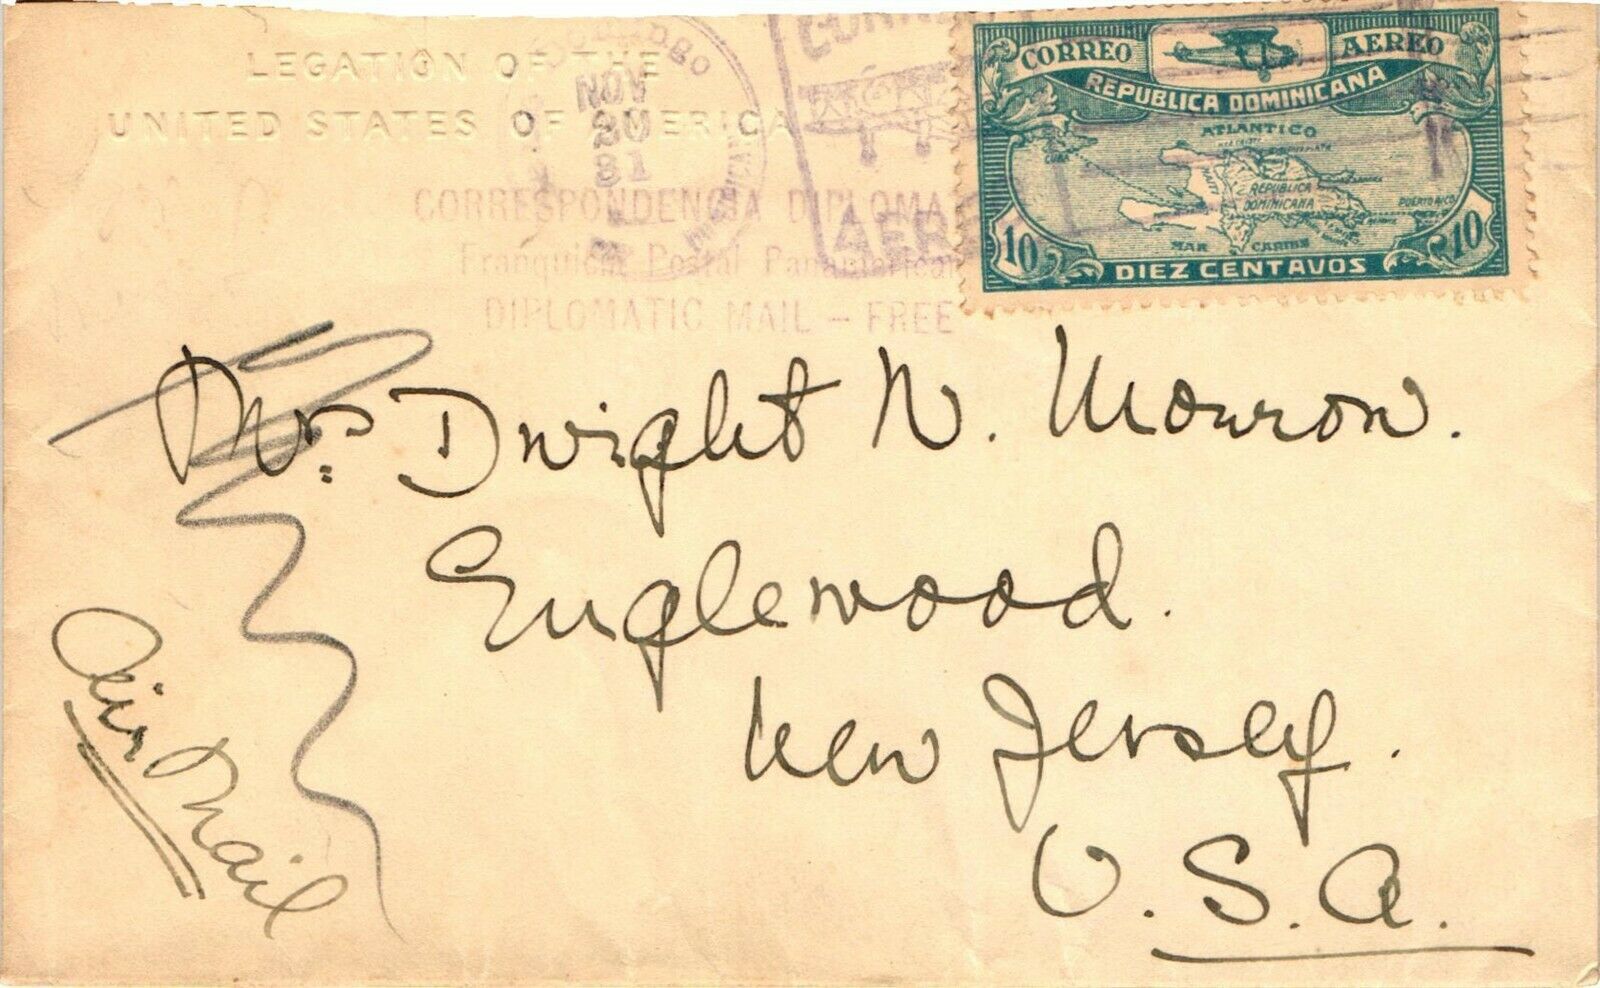 LEGATION OF THE
UNITED STATES OF AMERICA
NOV
31
CORREO AEREO
REPUBLICA DOMINICANA
ATLANTICO
CUBA
HAITI
REPUBLICA
DOMINICANA
PUERTO RICO
MAR CARIBE
10 10
DIEZ CENTAVOS
CORRESPONDENCIA DIPLOMA
Franquicia Postal Panamerican
DIPLOMATIC MAIL - FREE
Mrs. Dwight W. Morrow.
Englewood.
New Jersey.
U.S.A.
Air Mail